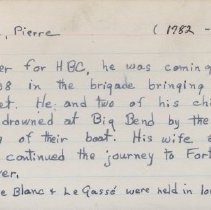 , Pierre (1782 -
er for HBC, he was coming
8 in the brigade bringing
et. He and two of his chi
drowned at Big Bend by the
g of their boat. His wife
continued the journey to Fort
ver.
e Blanc & Le Gassé were held in lo